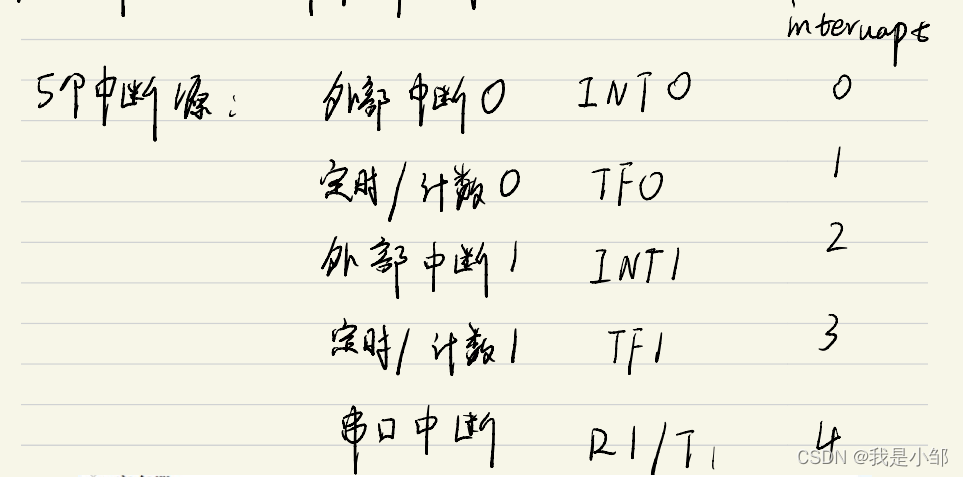 interuapt
5个中断源: 外部中断0 INT0 0
定时/计数0 TF0 1
外部中断1 INT1 2
定时/计数1 TF1 3
串口中断 RI/TI 4
CSDN @我是小邹